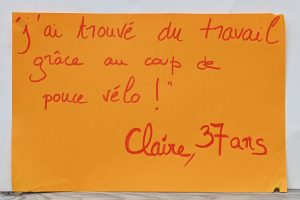 "j'ai trouvé du travail
grâce au coup de
pouce vélo !"
Claire, 37 ans